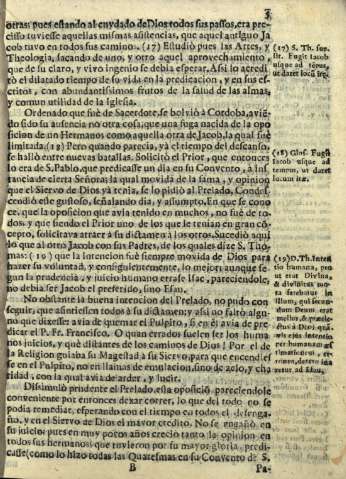 3
otras; pues estando al cuydado de Dios todos sus passos, era pre-
cisso tuviesse aquellas mismas assistencias, que aquel antiguo Ja-
cob tuvo en todos sus caminos. (17) Estudiò pues las Artes, y
Theologia, sacando de uno, y otro aquel aprovechamiento,
que de su claro, y vivo ingenio se debia esperar. Assi lo acredi-
tò el dilatado tiempo de su vida en la predicacion, y en sus es-
critos, con abundantissimos frutos de la salud de las almas,
y comun utilidad de la Iglesia.
Ordenado que fuè de Sacerdote, se bolviò à Cordoba, avien-
do sido su ausencia no otra cosa, que una fuga nacida de la opo-
sicion de un Hermano como aquella otra de Jacob, la qual fuè
limitada. (18) Pero quando parecia, yà el tiempo del descanso,
se hallò entre nuevas batallas. Solicitò el Prior, que entonces
lo era de S. Pablo, que predicasse un dia en su Convento, à ins-
tancia de cierta Señora la qual movida de la fama, y opinion
que el Siervo de Dios yà tenia, se lo pidiò al Prelado. Condes-
cendiò este gustoso, señalando dia, y assumpto. En que se cono-
ce, que la oposicion que avia tenido en muchos, no fuè de to-
dos, y que siendo el Prior uno de los que le tenian en gran con-
cepto, solicitava atraer à su dictamen à los otros. Sucediò aqui
lo que al otro Jacob con sus Padres, de los quales dize S. Tho-
mas: (19) que la intencion fuè siempre movida de Dios para
hazer su voluntad, y consiguientemente, lo mejor: aunque se-
gun la prudencia, y juicio humano errasse Isac, pareciendole,
no debia ser Jacob el preferido, sino Esau.
No obstante la buena intencion del Prelado, no pudo con-
seguir, que assintiessen todos à su dictamen; y assi no faltò algu-
no que dixesse avia de quemar el Pulpito, si en èl avia de pre-
dicar el P. Fr. Francisco. O quan errados suelen ser los huma-
nos juicios, y què distantes de los caminos de Dios! Por el de
la Religion guiaba su Magestad à su Siervo, para que encendies-
se en el Pulpito, no en llamas de emulacion, sino de zelo, y cha-
ridad: con la qual avia de arder, y lucir.
Dissimulò prudente el Prelado, esta oposiciò pareciendole
conveniente por entonces dexar correr, lo que del todo no se
podia remediar, esperando con el tiempo en todos el desenga-
ño, y en el Siervo de Dios el mayor credito. No se engañò en
su juicio: pues en muy pocos años crecio tanto la opinion en
todos sus hermanos: que tuvieron por su mayor gloria, predi-
casse (como lo hizo todas las Quaresmas en su Convento de S.
B
Pa-
(17) S. Th. sup.
sit. Fugit Iacob
usque ad tempus,
ut daret locũ iræ.
(18) Glos. Fugit
Iacob usque ad
tempus, ut daret
locum iræ.
(19) D. Th. Inten-
tio humana, pro
ut erat Divina,